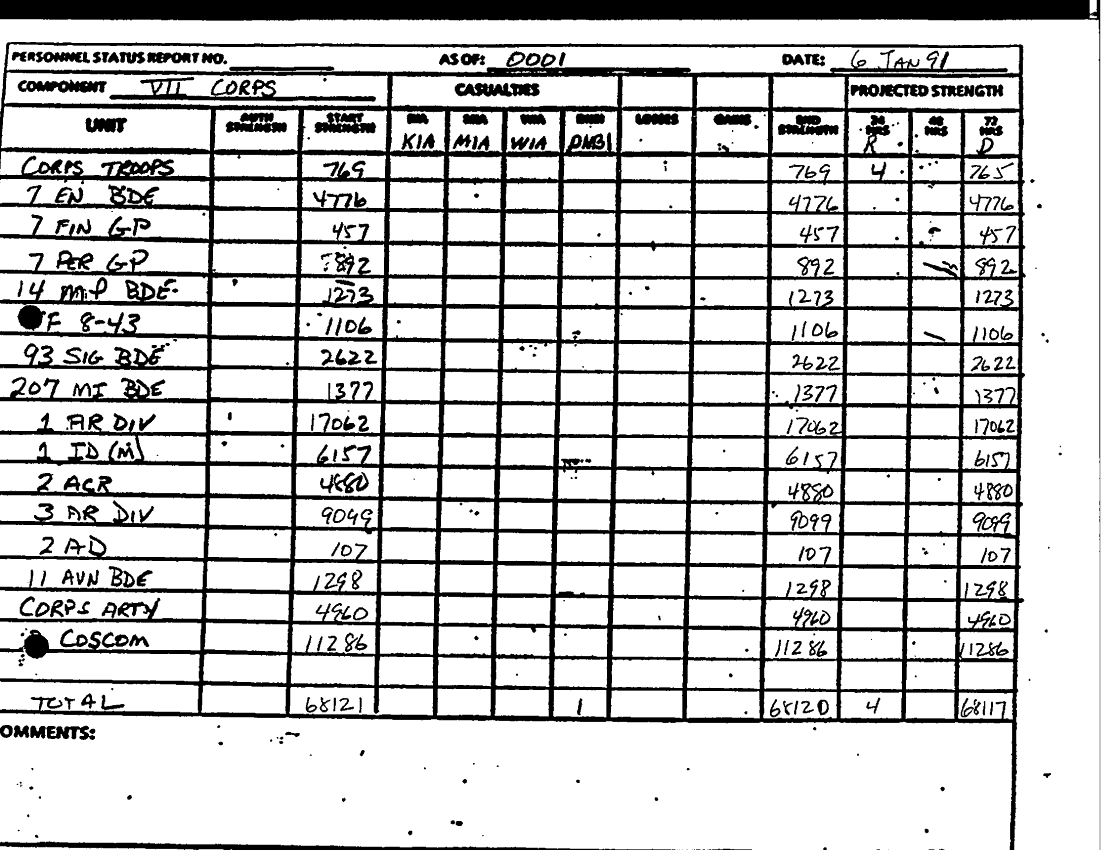 PERSONNEL STATUS REPORT NO. AS OF: 0001 DATE: 6 JAN 91
COMPONENT VII CORPS CASUALTIES PROJECTED STRENGTH
UNIT AUTH STRENGTH START STRENGTH KIA MIA WIA DNBI LOSSES GAINS END STRENGTH 24 HRS R 48 HRS 72 HRS D
CORPS TROOPS 769 769 4 765
7 EN BDE 4776 4776 4776
7 FIN GP 457 457 457
7 PER GP 892 892 892
14 MP BDE 1273 1273 1273
F 8-43 1106 1106 1106
93 SIG BDE 2622 2622 2622
207 MI BDE 1377 1377 1377
1 AR DIV 17062 17062 17062
1 ID (M) 6157 6157 6157
2 ACR 4880 4880 4880
3 AR DIV 9099 9099 9099
2 AD 107 107 107
11 AVN BDE 1298 1298 1298
CORPS ARTY 4960 4960 4960
COSCOM 11286 11286 11286
TOTAL 68121 1 68120 4 68117
OMMENTS: